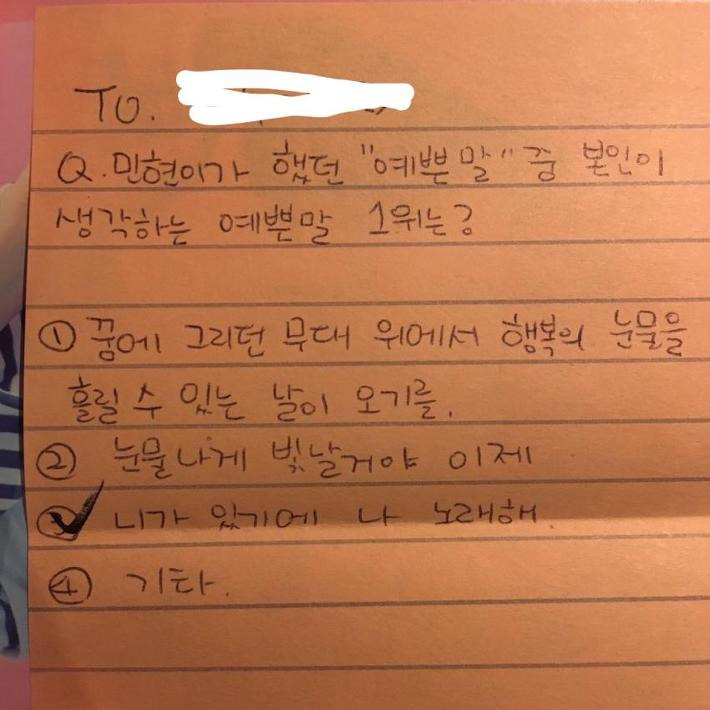 TO.
Q. 민현이가 했던 "예쁜말" 중 본인이
생각하는 예쁜말 1위는?
① 꿈에 그리던 무대 위에서 행복의 눈물을
흘릴 수 있는 날이 오기를.
② 눈물나게 빛날거야 이제
③ 니가 있기에 나 노래해.
④ 기타.